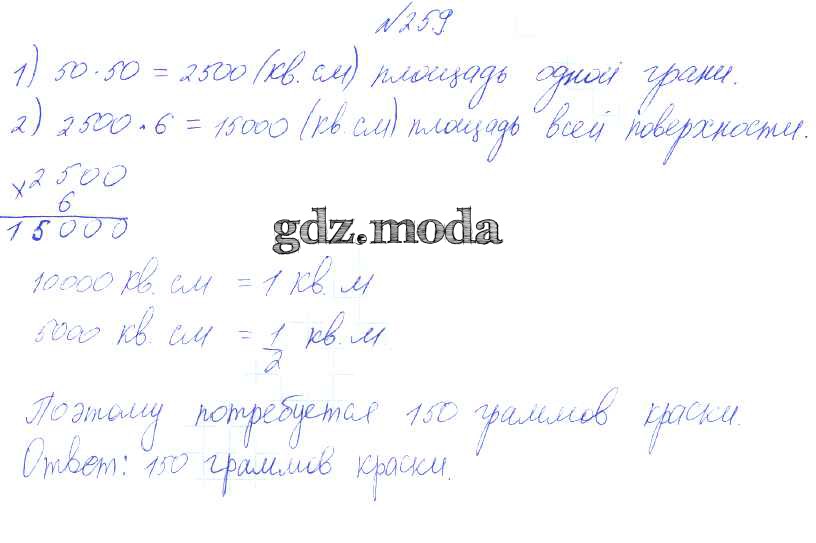 №259
1) 50·50 = 2500 (кв. см) площадь одной грани.
2) 2500·6 = 15000 (кв. см) площадь всей поверхности.
×2500
6
15000
gdz.moda
10000 кв. см = 1 кв. м
5000 кв. см = 1/2 кв. м
Поэтому потребуется 150 граммов краски.
Ответ: 150 граммов краски.